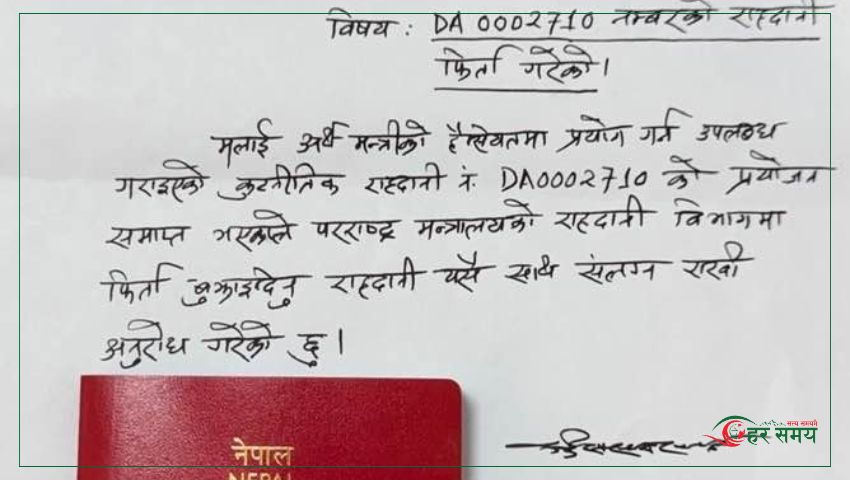 विषय : DA 0002710 नम्बरको राहदानी
फिर्ता गरेको।
मलाई अर्थ मन्त्रीको हैसियतमा प्रयोग गर्न उपलब्ध
गराइएको कुटनीतिक राहदानी नं: DA0002710 को प्रयोजन
समाप्त भएकोले परराष्ट्र मन्त्रालयको राहदानी विभागमा
फिर्ता बुझाइदिनु राहदानी यसै साथ संलग्न राखी
अनुरोध गरेको छु।
नेपाल
NEPAL
हर समय